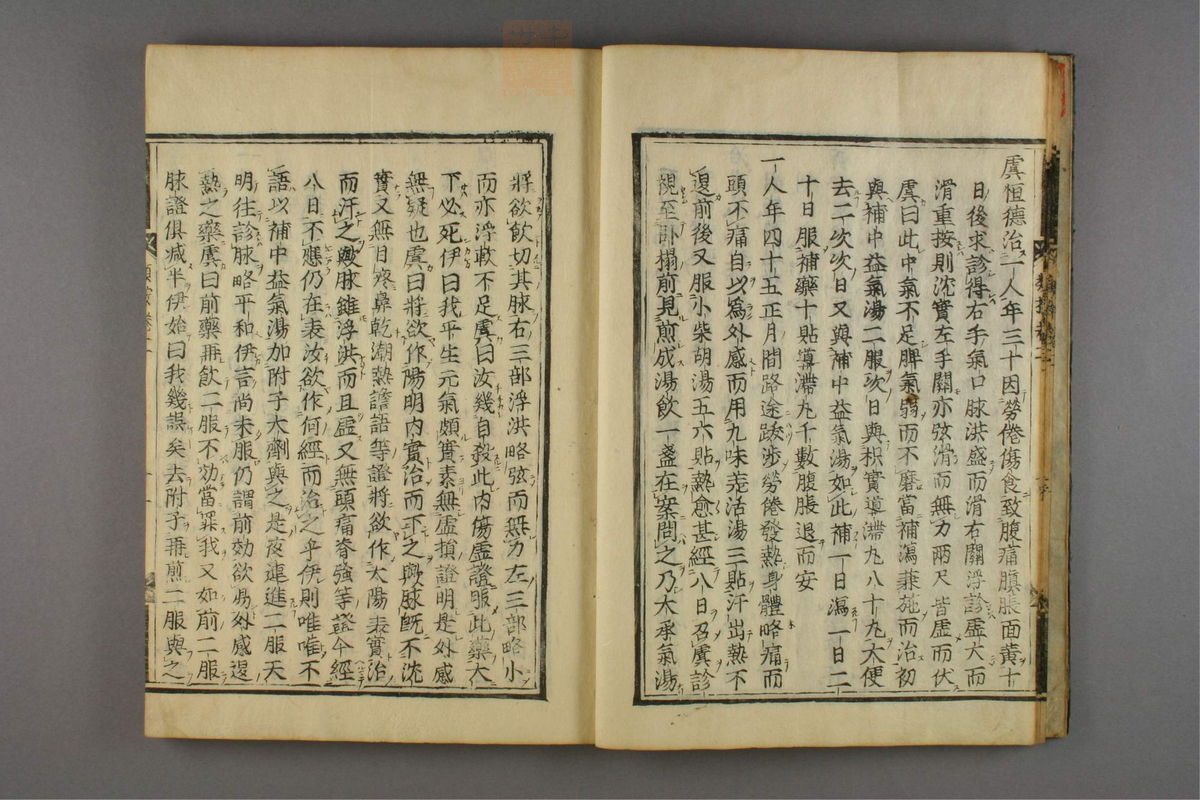 虞恒德治一人年三十因勞倦傷食致腹痛䐜脹面黄十
日後求診得右手氣口脉洪盛而滑右關浮診虛大而
滑重按則沈實左手關亦弦滑而無力兩尺皆虛而伏
虞曰此中氣不足脾氣弱而不磨當補瀉兼施而治初
與補中益氣湯二服次日與枳實導滯丸八十丸大便
去二次次日又與補中益氣湯如此補一日瀉一日二
十日服補藥十貼導滯丸千數腹脹退而安
一人年四十五正月間路途跋涉勞倦發熱身體略痛而
頭不痛自以爲外感而用九味羗活湯三貼汗出熱不
退前後又服小柴胡湯五六貼熱愈甚經八日召虞診
視至卧榻前見煎成湯飲一盞在案問之乃大承氣湯
將欲飲切其脉右三部浮洪略弦而無力左三部略小
而亦浮軟不足虞曰汝幾自殺此内傷虛證服此藥大
下必死伊曰我平生元氣頗實素無虛損證明是外感
無疑也虞曰將欲作陽明内實治而下之歟脉既不沈
實又無目疼鼻乾潮熱譫語等證將欲作太陽表實治
而汗之歟脉雖浮洪而且虛又無頭痛脊強等證今經
八日不應仍在表汝欲作何經而治之乎伊則唯唯不
語以補中益氣湯加附子大劑與之是夜連進二服天
明往診脉略平和伊言尚未服仍謂前効欲易外感退
熱之藥虞曰前藥再飲二服不効當罪我又如前二服
脉證俱减半伊始曰我幾誤矣去附子再煎二服與之